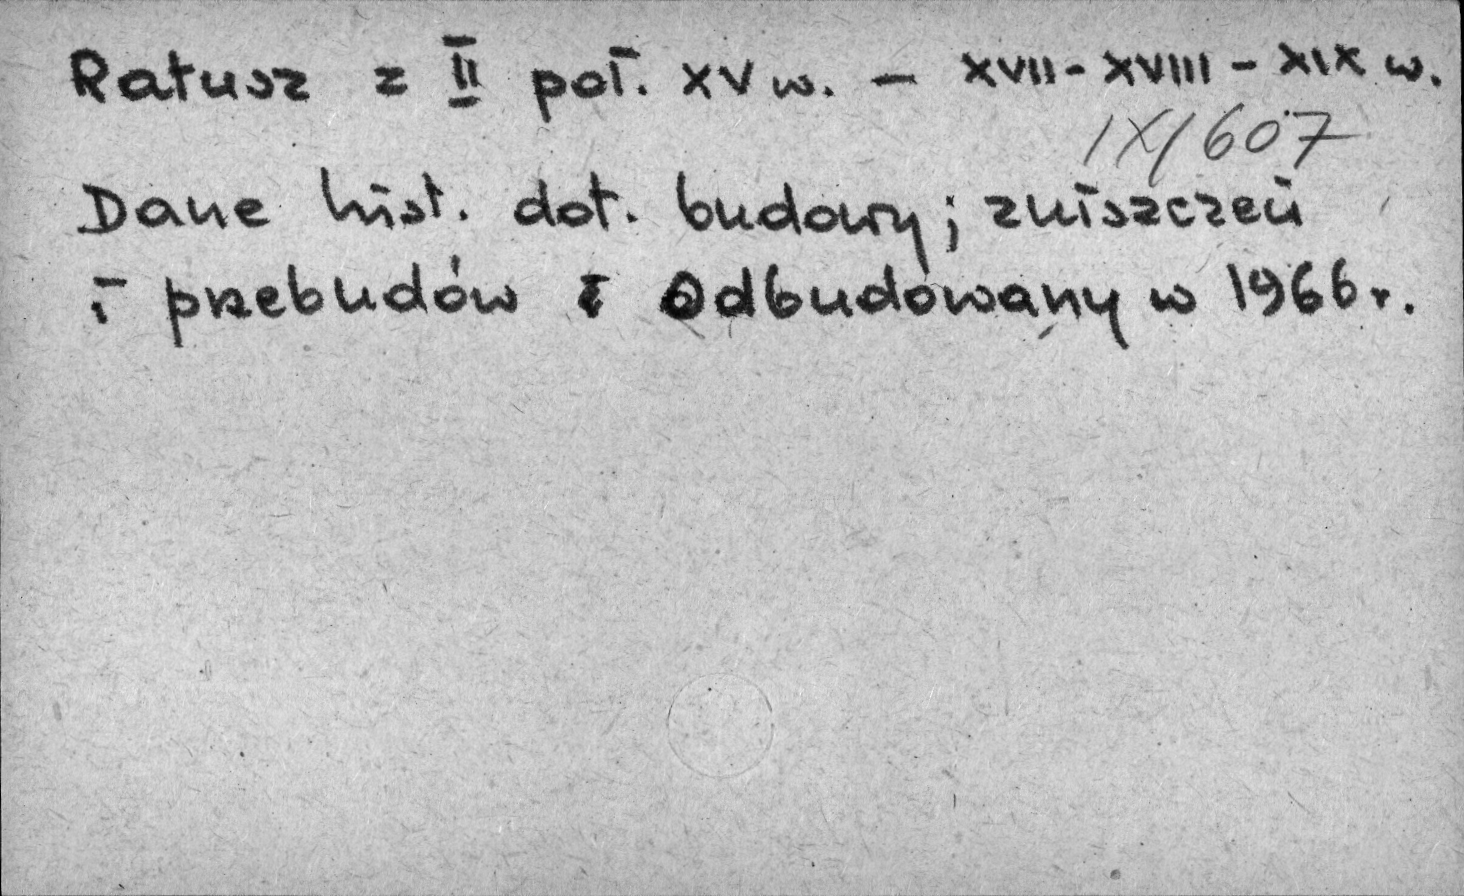 Ratusz z II poł. XV w. – XVII - XVIII - XIX w.
IX/607
Dane hist. dot. budowy; zniszczeń
i przebudów i Odbudowany w 1966 r.